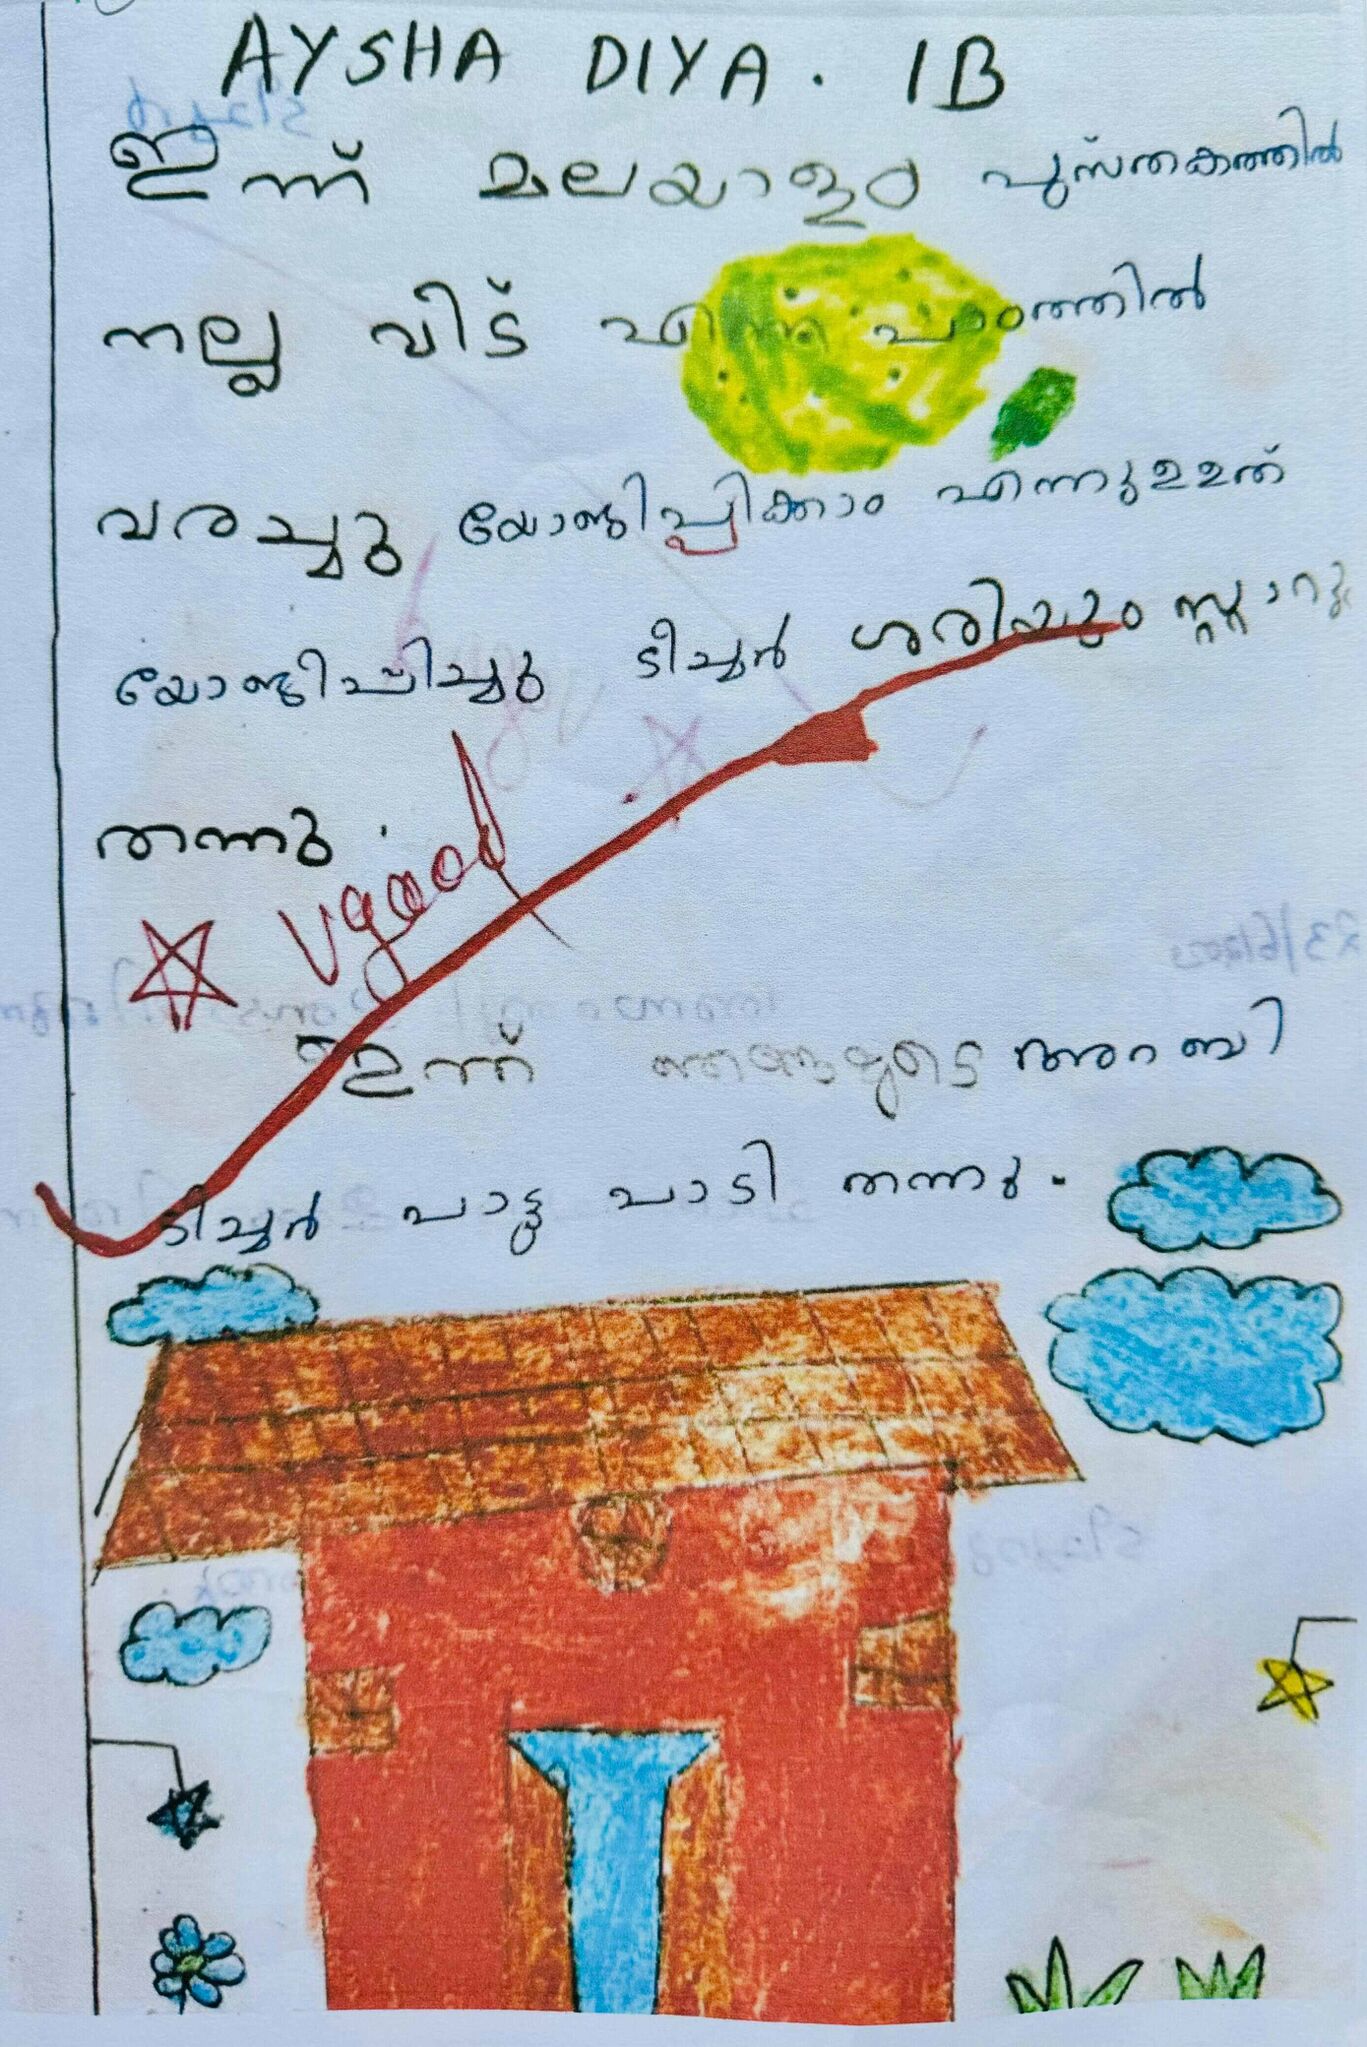 AYSHA DIYA. 1B
ഇന്ന് മലയാളം പുസ്തകത്തിൽ
നല്ല വീട് എന്ന പാഠത്തിൽ
വരച്ചു യോജിപ്പിക്കാം എന്നുള്ളത്
യോജിപ്പിച്ചു ടീച്ചർ ശരിയും സ്റ്റാറു
തന്നു.
Vgood
ഇന്ന് ഞങ്ങളുടെ അറബി
ടീച്ചർ പാട്ടു പാടി തന്നു.